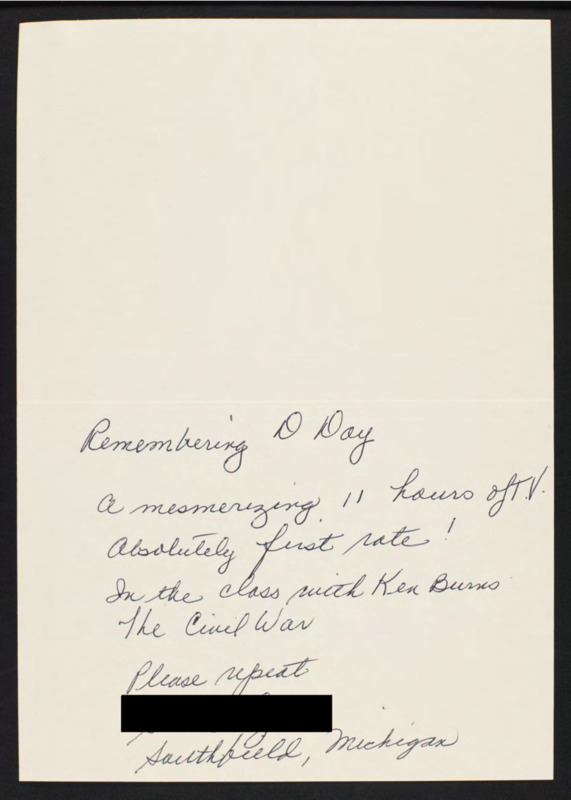 Remembering D Day
A mesmerizing 11 hours of T.V.
Absolutely first rate!
In the class with Ken Burns
The Civil War
Please repeat
Southfield, Michigan